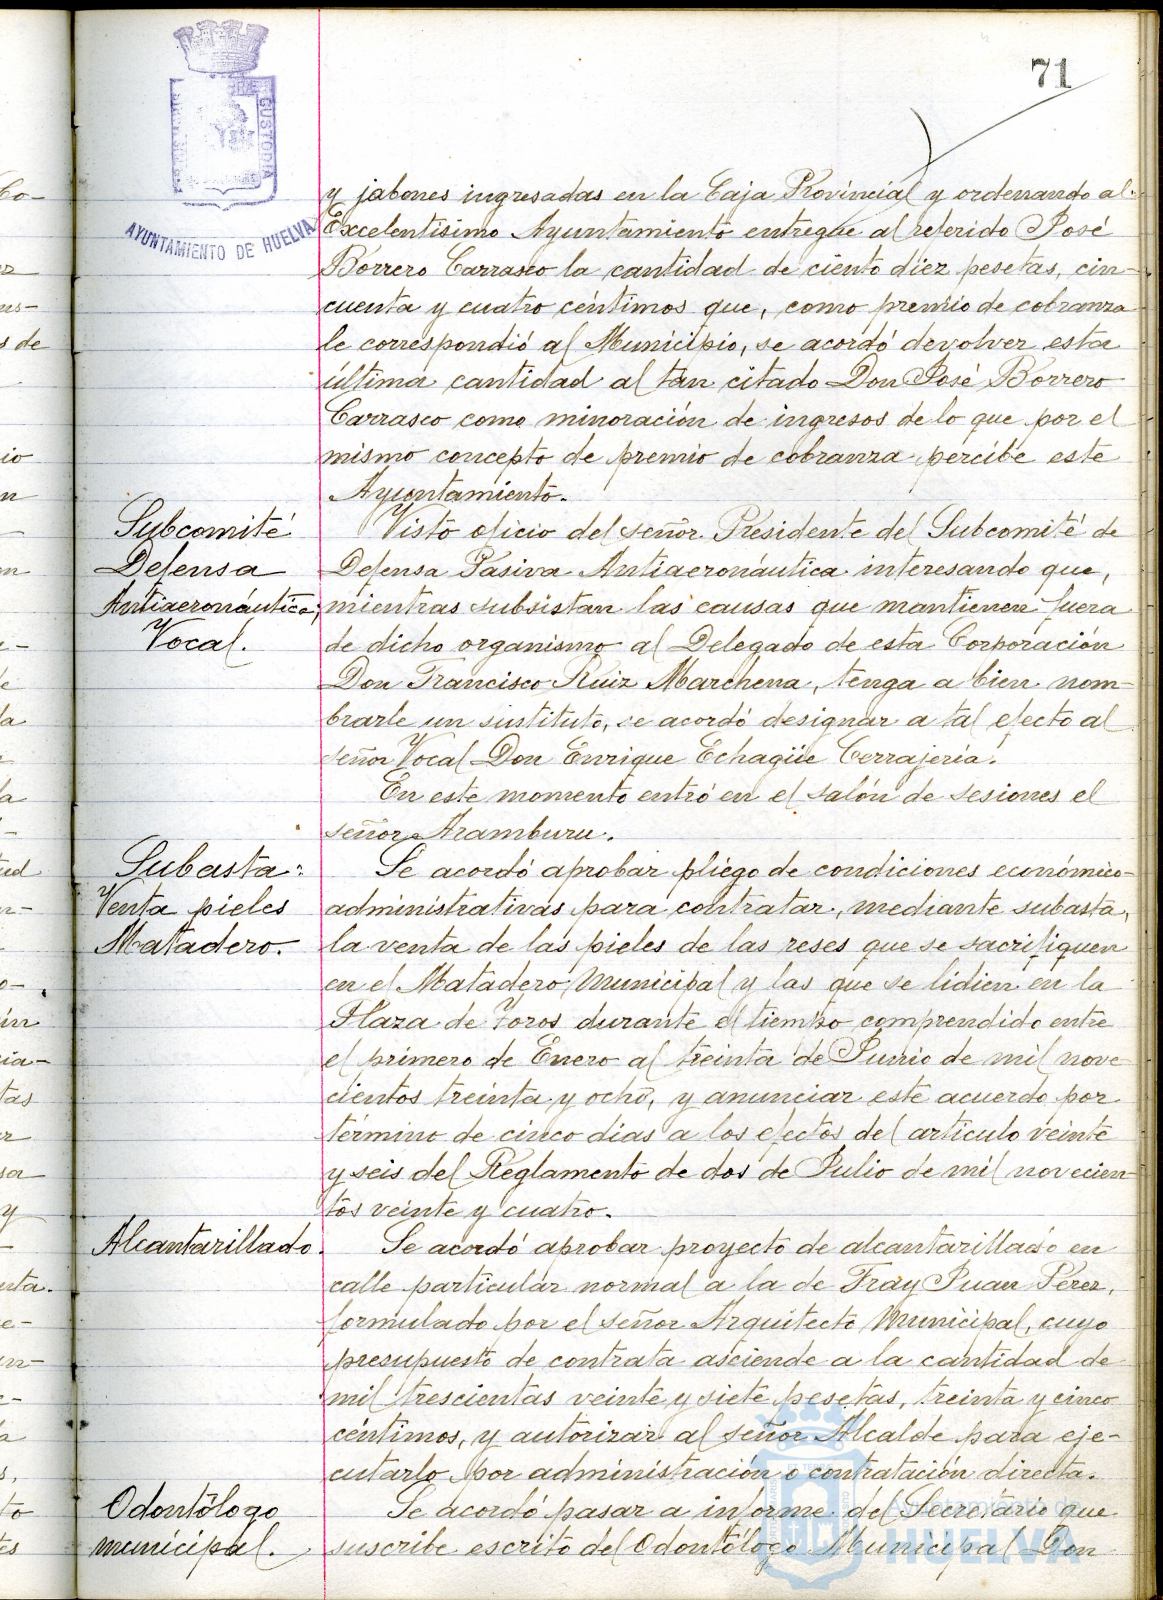 71
AYUNTAMIENTO DE HUELVA
y jabones ingresadas en la Caja Provincial y ordenando al
Excelentisimo Ayuntamiento entregue al referido José
Borrero Carrasco la cantidad de ciento diez pesetas, cin-
cuenta y cuatro céntimos que, como premio de cobranza
le correspondió al Municipio, se acordó devolver esta
última cantidad al tan citado Don José Borrero
Carrasco como minoración de ingresos de lo que por el
mismo concepto de premio de cobranza percibe este
Ayuntamiento.
Subcomité
Defensa
Antiaeronáutica;
Vocal.
Visto oficio del señor Presidente del Subcomité de
Defensa Pasiva Antiaeronáutica interesando que,
mientras subsistan las causas que mantienen fuera
de dicho organismo al Delegado de esta Corporación
Don Francisco Ruiz Marchena, tenga a bien nom-
brarle un sustituto, se acordó designar a tal efecto al
señor Vocal Don Enrique Echagüe Cerrajería.
En este momento entró en el salón de sesiones el
señor Aramburu.
Subasta:
Venta pieles
Matadero.
Se acordó aprobar pliego de condiciones económico-
administrativas para contratar, mediante subasta,
la venta de las pieles de las reses que se sacrifiquen
en el Matadero Municipal y las que se lidien en la
Plaza de Toros durante el tiempo comprendido entre
el primero de Enero al treinta de Junio de mil nove
cientos treinta y ocho, y anunciar este acuerdo por
término de cinco dias a los efectos del artículo veinte
y seis del Reglamento de dos de Julio de mil novecien-
tos veinte y cuatro.
Alcantarillado.
Se acordó aprobar proyecto de alcantarillado en
calle particular normal a la de Fray Juan Pérez,
formulado por el señor Arquitecto Municipal, cuyo
presupuesto de contrata asciende a la cantidad de
mil trescientas veinte y siete pesetas, treinta y cinco
céntimos, y autorizar al señor Alcalde para eje-
cutarlo por administración o contratación directa.
Odontólogo
municipal.
Se acordó pasar a informe del Secretario que
suscribe escrito del Odontólogo Municipal Don
Ayuntamiento de
HUELVA